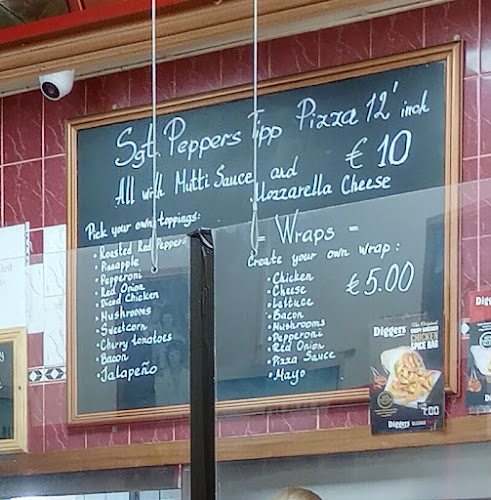 Sgt. Peppers Tipp Pizza 12' inch
€ 10
All with Mutti Sauce and
Mozzarella Cheese
Pick your own toppings:
• Roasted Red Peppers
• Pineapple
• Pepperoni
• Red Onion
• Diced Chicken
• Mushrooms
• Sweetcorn
• Cherry tomatoes
• Bacon
• Jalapeño
- Wraps -
Create your own wrap:
€5.00
• Chicken
• Cheese
• Lettuce
• Bacon
• Mushrooms
• Pepperoni
• Red Onion
• Pizza Sauce
• Mayo
Diggers
CHICKEN
SPICE BAG
7.00
Diggers
Diggers